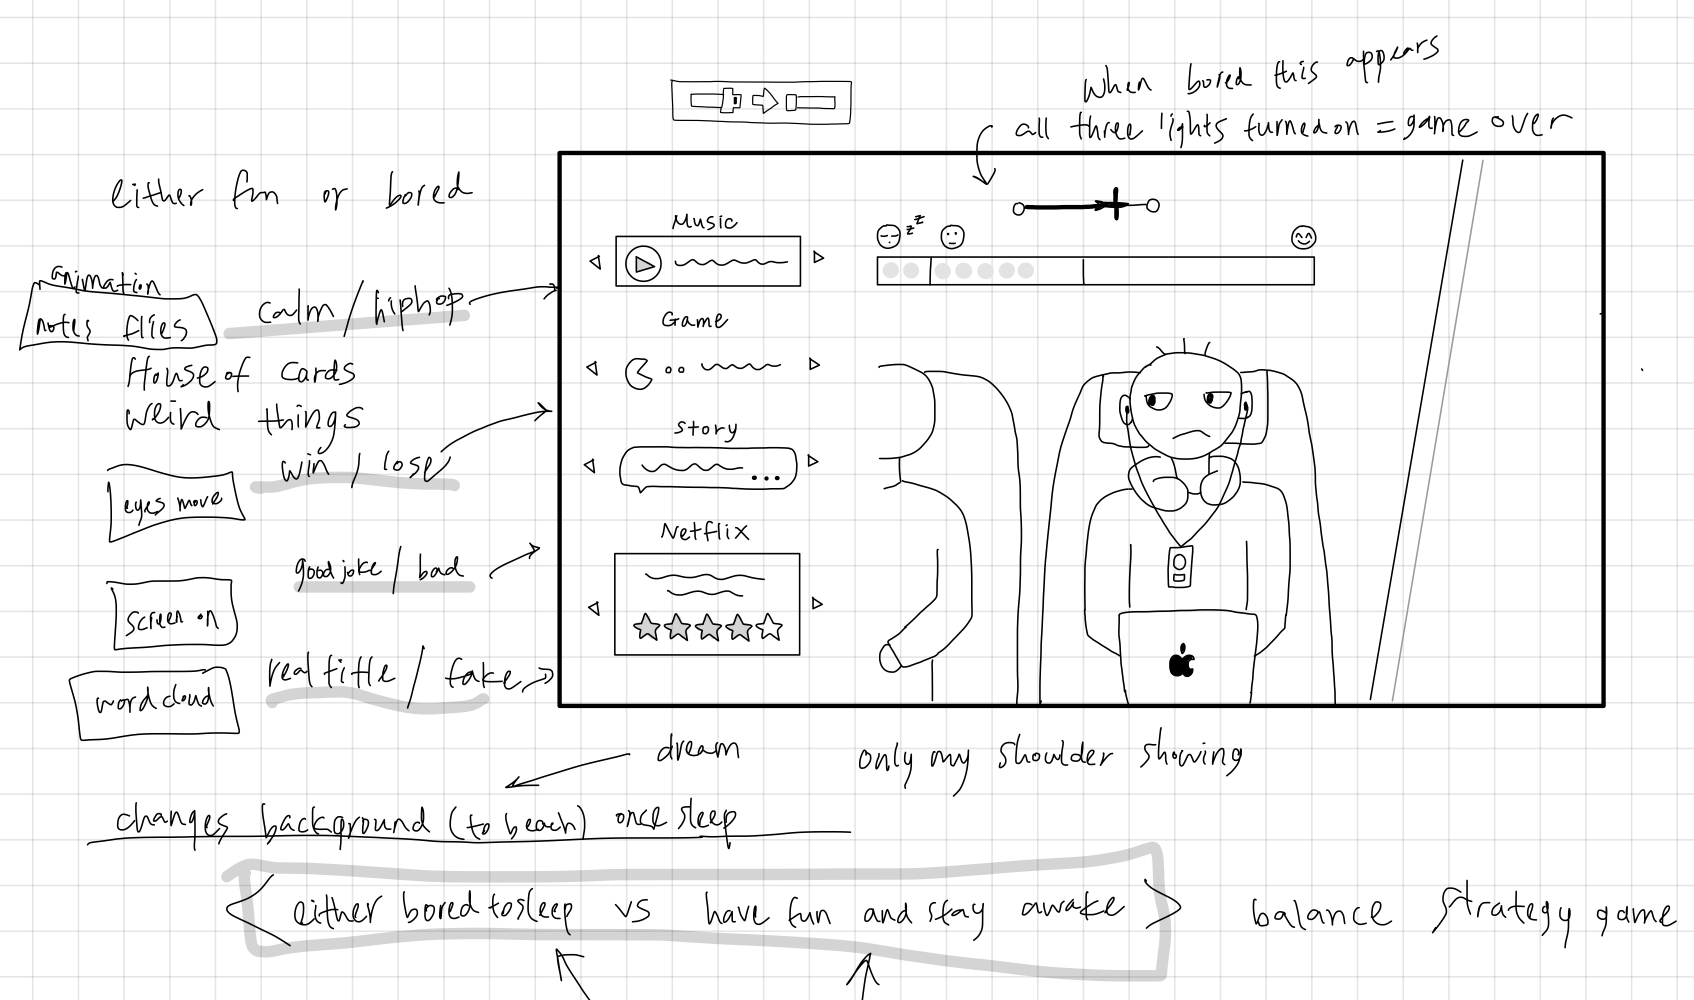 When bored this appears
all three lights turned on = game over
either fun or bored
animation
notes flies
calm / hiphop
House of cards
weird things
win / lose
eyes move
good joke / bad
screen on
real title / fake
word cloud
Music
Game
Story
...
Netflix
zzz
dream
only my shoulder showing
changes background (to beach) once sleep
< either bored to sleep vs have fun and stay awake >
balance strategy game